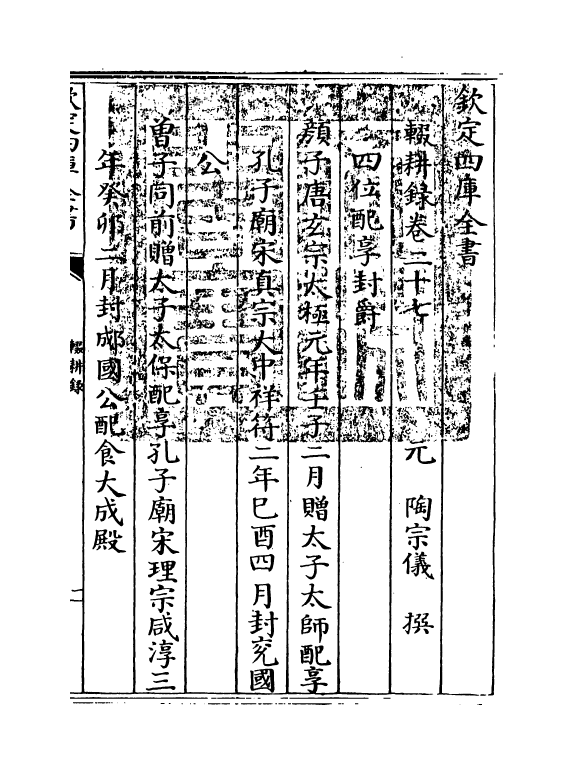 欽定四庫全書
輟耕録卷二十七 元 陶宗儀 撰
四位配享封爵
顔子唐玄宗太極元年壬子二月贈太子太師配享
孔子廟宋真宗大中祥符二年巳酉四月封兖國
公
曽子同前贈太子太保配享孔子廟宋理宗咸淳三
年癸卯二月封郕國公配食大成殿
欽定四庫全書
輟耕録